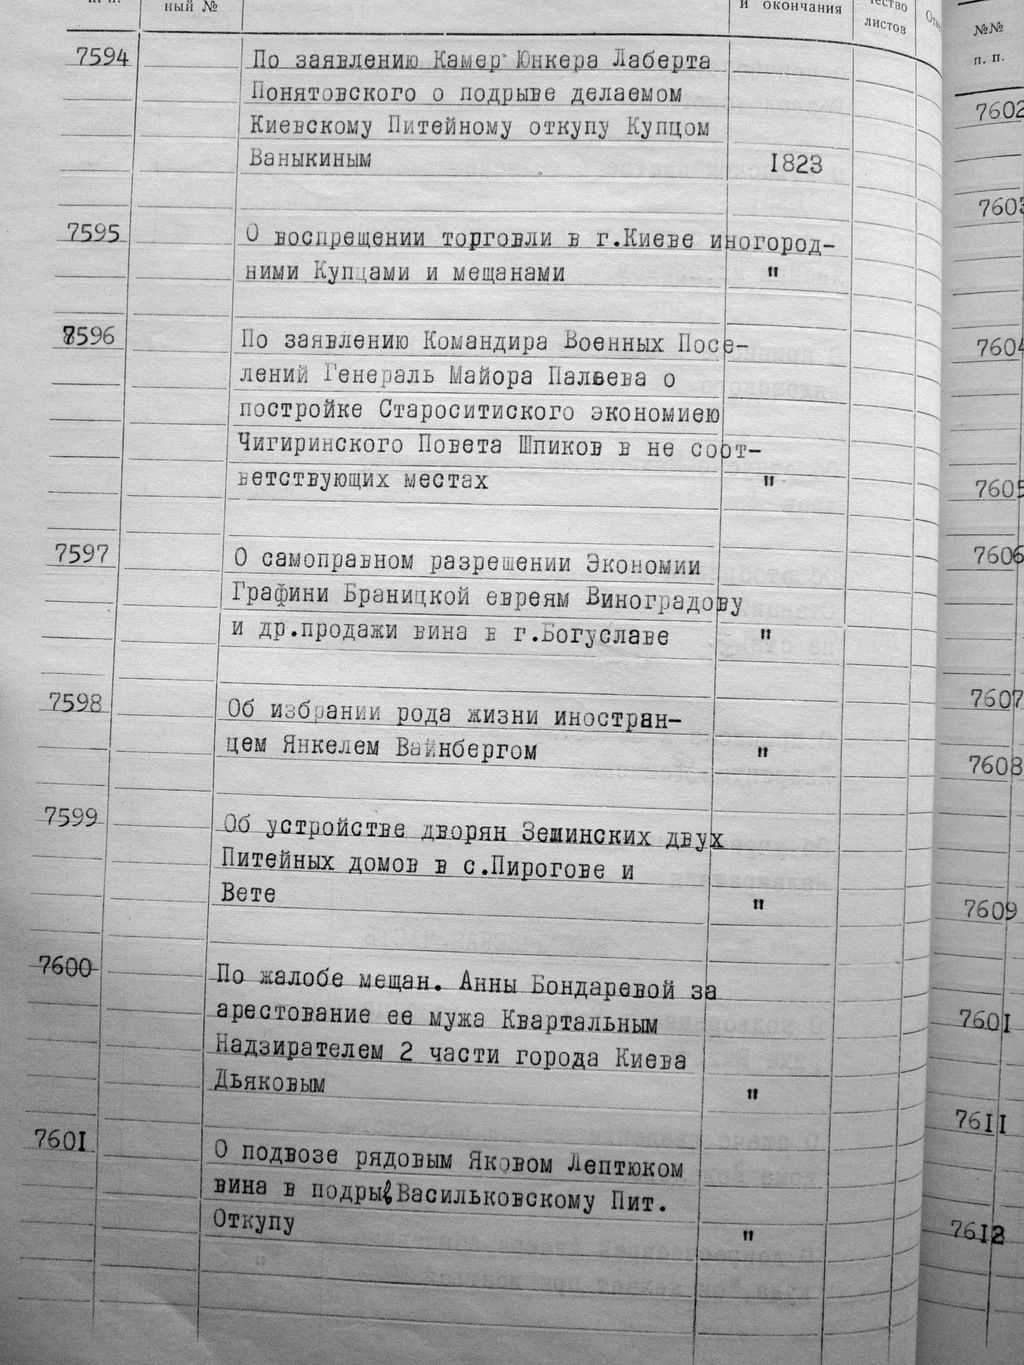 ный №
и окончания
листов
№№
п. п.
7594
По заявлению Камер Юнкера Лаберта
Понятовского о подрыве делаемом
Киевскому Питейному откупу Купцом
Ваныкиным 1823
7595
О воспрещении торговли в г.Киеве иногород-
ними Купцами и мещанами "
7596
По заявлению Командира Военных Посе-
лений Генераль Майора Пальева о
постройке Староситиского экономиею
Чигиринского Повета Шпиков в не соот-
ветствующих местах "
7597
О самоправном разрешении Экономии
Графини Браницкой евреям Виноградову
и др.продажи вина в г.Богуславе "
7598
Об избрании рода жизни иностран-
цем Янкелем Вайнбергом "
7599
Об устройстве дворян Земинских двух
Питейных домов в с.Пирогове и
Вете "
7600
По жалобе мещан. Анны Бондаревой за
арестование ее мужа Квартальным
Надзирателем 2 части города Киева
Дьяковым "
7601
О подвозе рядовым Яковом Лептюком
вина в подрыв Васильковскому Пит.
Откупу "
7602
7603
7604
7605
7606
7607
7608
7609
7601
7611
7612